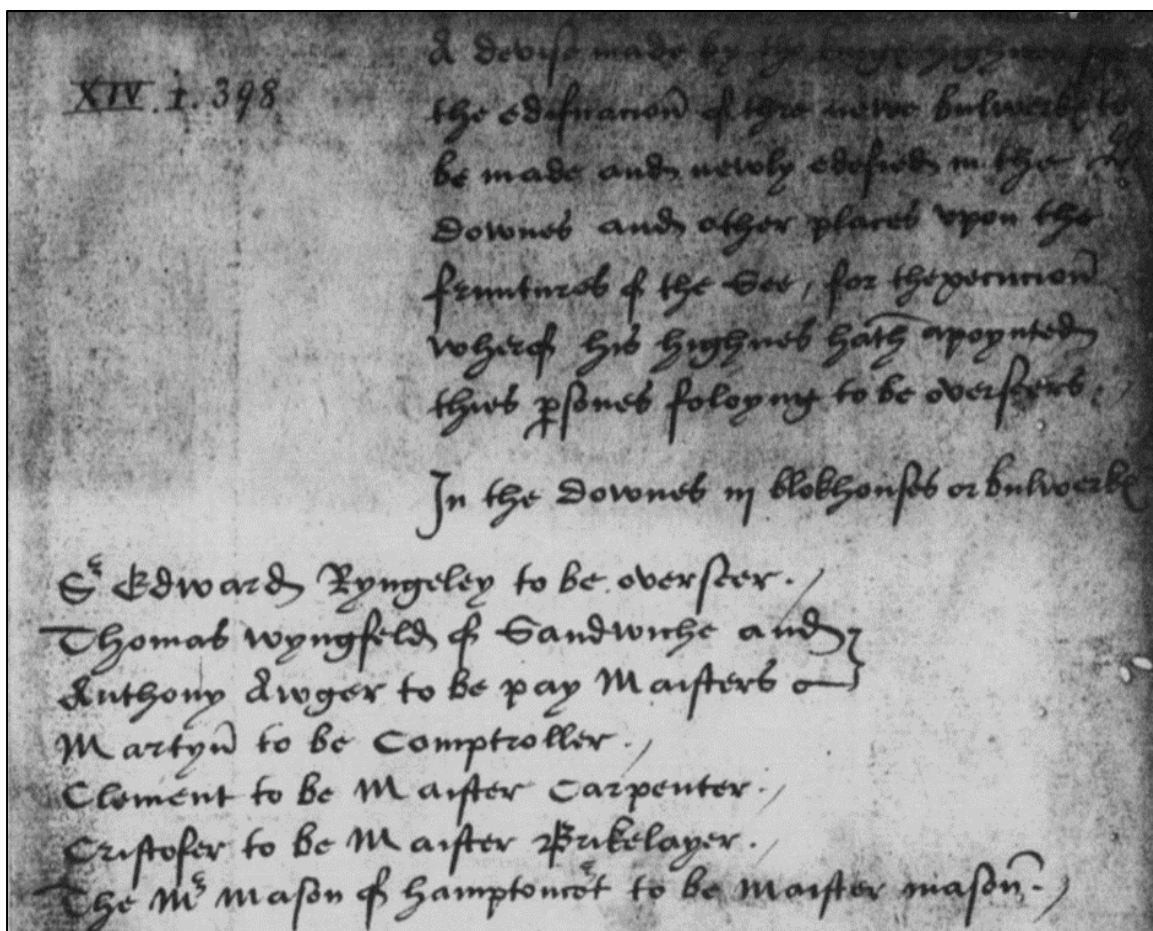 XIV. i. 398
A devise made by the kinges highnes for
the edificacion of thre newe bulwerkes to
be made and newly edefied in the
Downes and other places vpon the
fruntures of the See, for thexecucion
wherof his highnes hath apoynted
thies psones foloyng to be overseers.
In the Downes iij blokhouses or bulwerkes
Sr Edward Ryngeley to be overseer.
Thomas Wyngfeld of Sandwiche and
Anthony Awger to be pay Maisters
Martyn to be Comptroller.
Clement to be Maister Carpenter.
Cristofer to be Maister Brikelayer.
The Mr Mason of hamptoncort to be Maister mason.